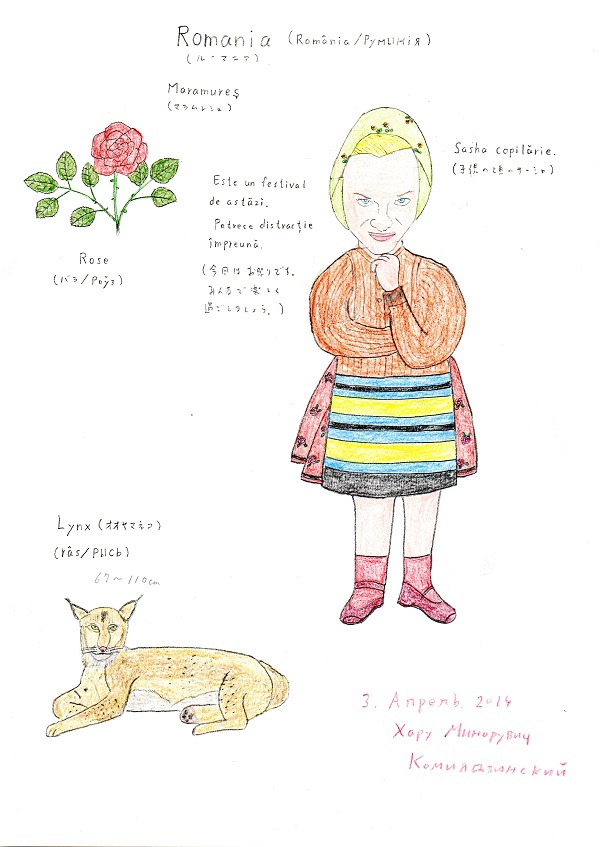 Romania (România/Румынiя)
(ルーマニア)
Maramureş
(マラムレシュ)
Sasha copilărie.
(子供の頃のサーシャ)
Este un festival
de astăzi.
Potrece distracţie
împreună.
(今日はお祭りです。
みんなで楽しく
過ごしましょう。)
Rose
(バラ/Роуз)
Lynx (オオヤマネコ)
(râs/Рысь)
67~110cm
3. Апрель. 2014
Хару Минорувич